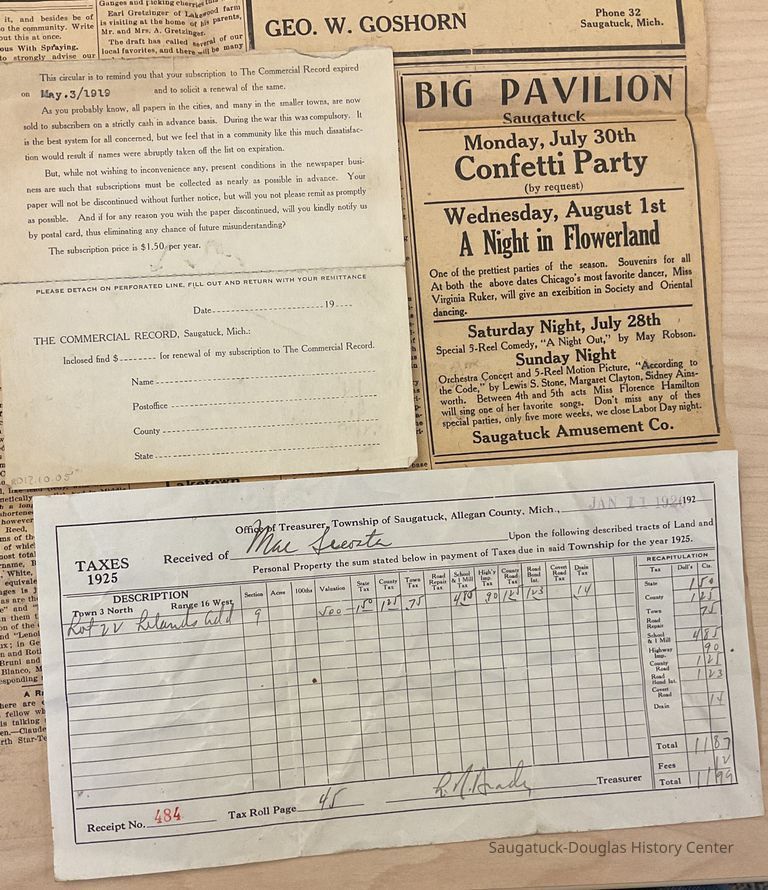 it, and besides be of
to the community. Write
out this at once.
ous With Spraying.
to strongly advise our
Ganges and picking cherries this
Earl Gretzinger of Lakewood farm
is visiting at the home of his parents,
Mr. and Mrs. A. Gretzinger.
The draft has called several of our
local favorites, and there will be many
GEO. W. GOSHORN
Phone 32
Saugatuck, Mich.
This circular is to remind you that your subscription to The Commercial Record expired
on May.3/1919 and to solicit a renewal of the same.
As you probably know, all papers in the cities, and many in the smaller towns, are now
sold to subscribers on a strictly cash in advance basis. During the war this was compulsory. It
is the best system for all concerned, but we feel that in a community like this much dissatisfac-
tion would result if names were abruptly taken off the list on expiration.
But, while not wishing to inconvenience any, present conditions in the newspaper busi-
ness are such that subscriptions must be collected as nearly as possible in advance. Your
paper will not be discontinued without further notice, but will you not please remit as promptly
as possible. And if for any reason you wish the paper discontinued, will you kindly notify us
by postal card, thus eliminating any chance of future misunderstanding?
The subscription price is $1.50 per year.
PLEASE DETACH ON PERFORATED LINE, FILL OUT AND RETURN WITH YOUR REMITTANCE
Date 19
THE COMMERCIAL RECORD, Saugatuck, Mich.:
Inclosed find $ for renewal of my subscription to The Commercial Record.
Name
Postoffice
County
State
2012.10.05
BIG PAVILION
Saugatuck
Monday, July 30th
Confetti Party
(by request)
Wednesday, August 1st
A Night in Flowerland
One of the prettiest parties of the season. Souvenirs for all
At both the above dates Chicago's most favorite dancer, Miss
Virginia Ruker, will give an exibition in Society and Oriental
dancing.
Saturday Night, July 28th
Special 5-Reel Comedy, "A Night Out," by May Robson.
Sunday Night
Orchestra Concert and 5-Reel Motion Picture, "According to
the Code," by Lewis S. Stone, Margaret Clayton, Sidney Ains-
worth. Between 4th and 5th acts Miss Florence Hamilton
will sing one of her favorite songs. Don't miss any of thes
special parties, only five more weeks, we close Labor Day night.
Saugatuck Amusement Co.
Laketown
Office of Treasurer, Township of Saugatuck, Allegan County, Mich., JAN 11 192
TAXES
1925
Received of Mac
Upon the following described tracts of Land and
Personal Property the sum stated below in payment of Taxes due in said Township for the year 1925.
DESCRIPTION
Town 3 North Range 16 West
Section Acres 100ths Valuation State Tax County Tax Town Tax Road Repair Tax School & 1 Mill Tax High'y Imp. Tax County Road Tax Road Bond Int. Covert Road Tax Drain Tax
Lot 22 Add 9 500 150 125 75 485 90 125 123 14
RECAPITULATION
Tax Doll's Cts.
State 1 50
County 1 25
Town 75
Road Repair
School & 1 Mill 4 85
Highway Imp. 90
County Road 1 25
Road Bond Int. 1 23
Covert Road
Drain 14
Total 11 87
Fees 12
Total 11 99
Treasurer
Receipt No. 484
Tax Roll Page 45
Saugatuck-Douglas History Center